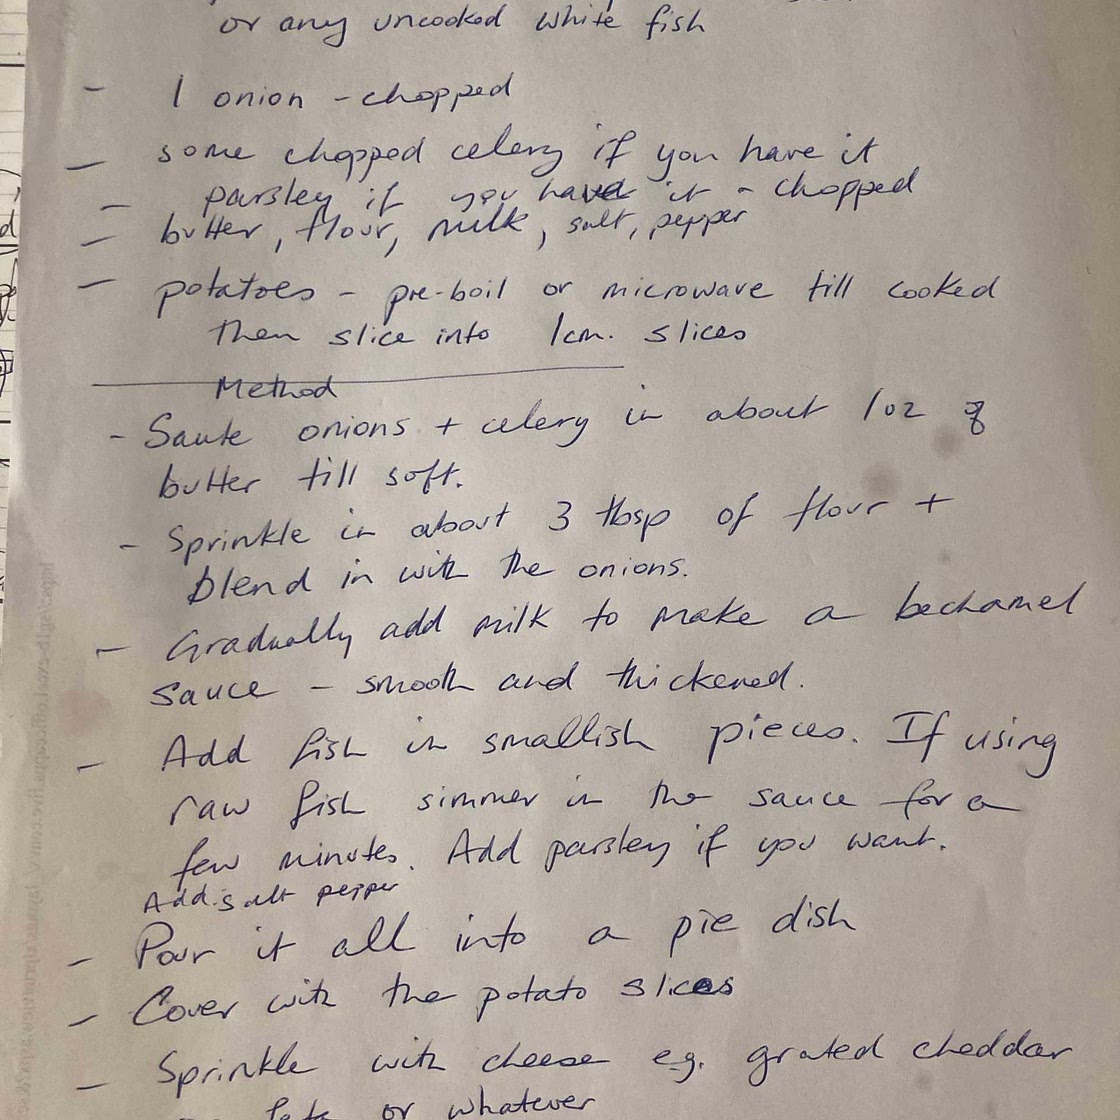 or any uncooked white fish
- 1 onion - chopped
- some chopped celery if you have it
- parsley if you have it - chopped
- butter, flour, milk, salt, pepper
- potatoes - pre-boil or microwave till cooked
then slice into 1cm. slices
Method
- Saute onions + celery in about 1oz of
butter till soft.
- Sprinkle in about 3 tbsp of flour +
blend in with the onions.
- Gradually add milk to make a bechamel
sauce - smooth and thickened.
- Add fish in smallish pieces. If using
raw fish simmer in the sauce for a
few minutes. Add parsley if you want.
Add salt pepper
- Pour it all into a pie dish
- Cover with the potato slices
- Sprinkle with cheese eg. grated cheddar
or whatever